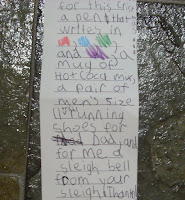 for this
a pen that
writes in
and a
mug of
Hot Coco
a pair of
men's size
11 running
shoes for
Dad, and
for me a
sleigh bell
from your
sleigh! Thank